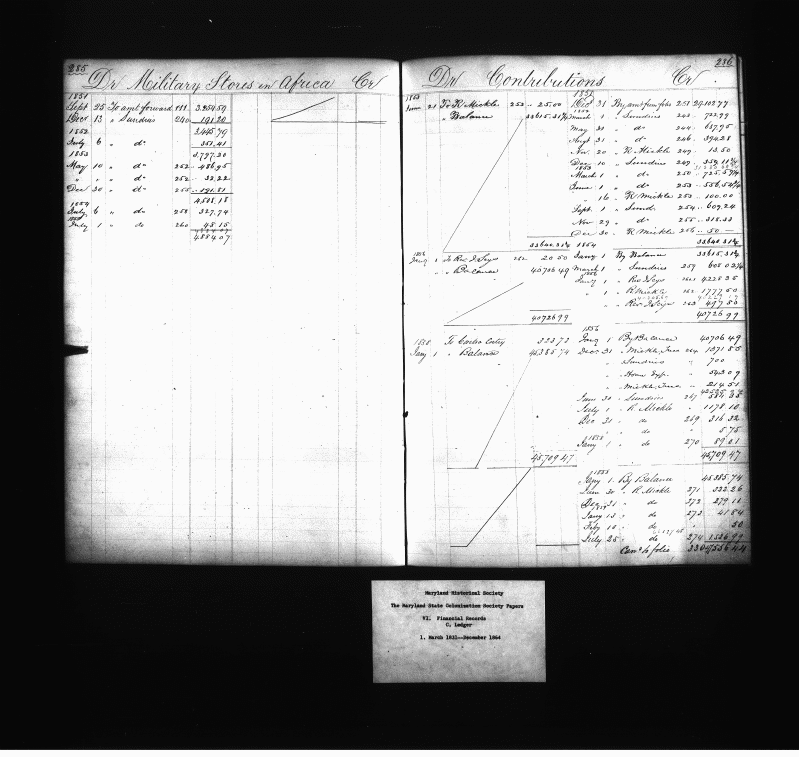 285
Dr Military Stores in Africa Cr
1851
Sept 25 To amt forward 181 3254.59
Decr 13 " Sundries 240 191.20
3445.79
1852
July 6 " do 351.41
3797.20
1853
May 10 " do 252 486.95
" " do 252 32.22
Dec 30 " do 255 191.81
4508.18
1854
July 6 " do 258 327.74
July 1 " do 260 48.15
4884.07
236
Dr Contributions Cr
1853
June 21 To R Mickle 252 25.00
" Balance 33615.31¼
33640.31¼
1856
Jany 1 To Rev J Seys 262 20 50
" " Balance 40706 49
40726 99
1858
To Contra Entry 323 73
Jany 1 " Balance 45385 74
45709 47
Dec 31 By amt from folio 251 29102.77
March 1 " Sundries 243 722.99
May 31 " do 244 637.95
Augt 31 " do 246 394.28
Nov 20 " R Mickle 249 13.50
Dec 10 " Sundries 249
1853
March 1 " do 250
June 1 " do 253
" 16 " R Mickle 253 100.00
Sept. 1 " Sund. 254 609.24
Nov 29 " do 255 318.33
Dec 30 " R Mickle 256 50 —
33640.31¼
1854
Jany 1 By Balance 33615.31¼
March 1 " Sundries 259
1856
Jany 1 " Rev J Seys 261
" 1 " R Mickle 262 1777 50
" " Rev J Seys 263 497 50
40726 99
1856
Jany 1 By Balance 40706 49
Dec 31 " Mickle, Treas 264
" Sundries " 700
" Home Exp.
" Mickle, Treas " 214 51
June 30 " Sundries 267 584 35
July 1 " R Mickle " 1178 10
Dec 31 " do 269 316 32
" " do " 5 75
1858
Jany 1 " do 270 89 01
45709 47
1858
Jany 1 By Balance 45385 74
June 30 " R. Mickle 271 322 26
Dec 31 " do 272 279 11
Jany 13 " do 273 41 84
Feby 10 " do " 50
July 25 " do 274 1526 99
Carrd to folio
Maryland Historical Society
The Maryland State Colonization Society Papers
VI. Financial Records
C. Ledger
1. March 1831--December 1864